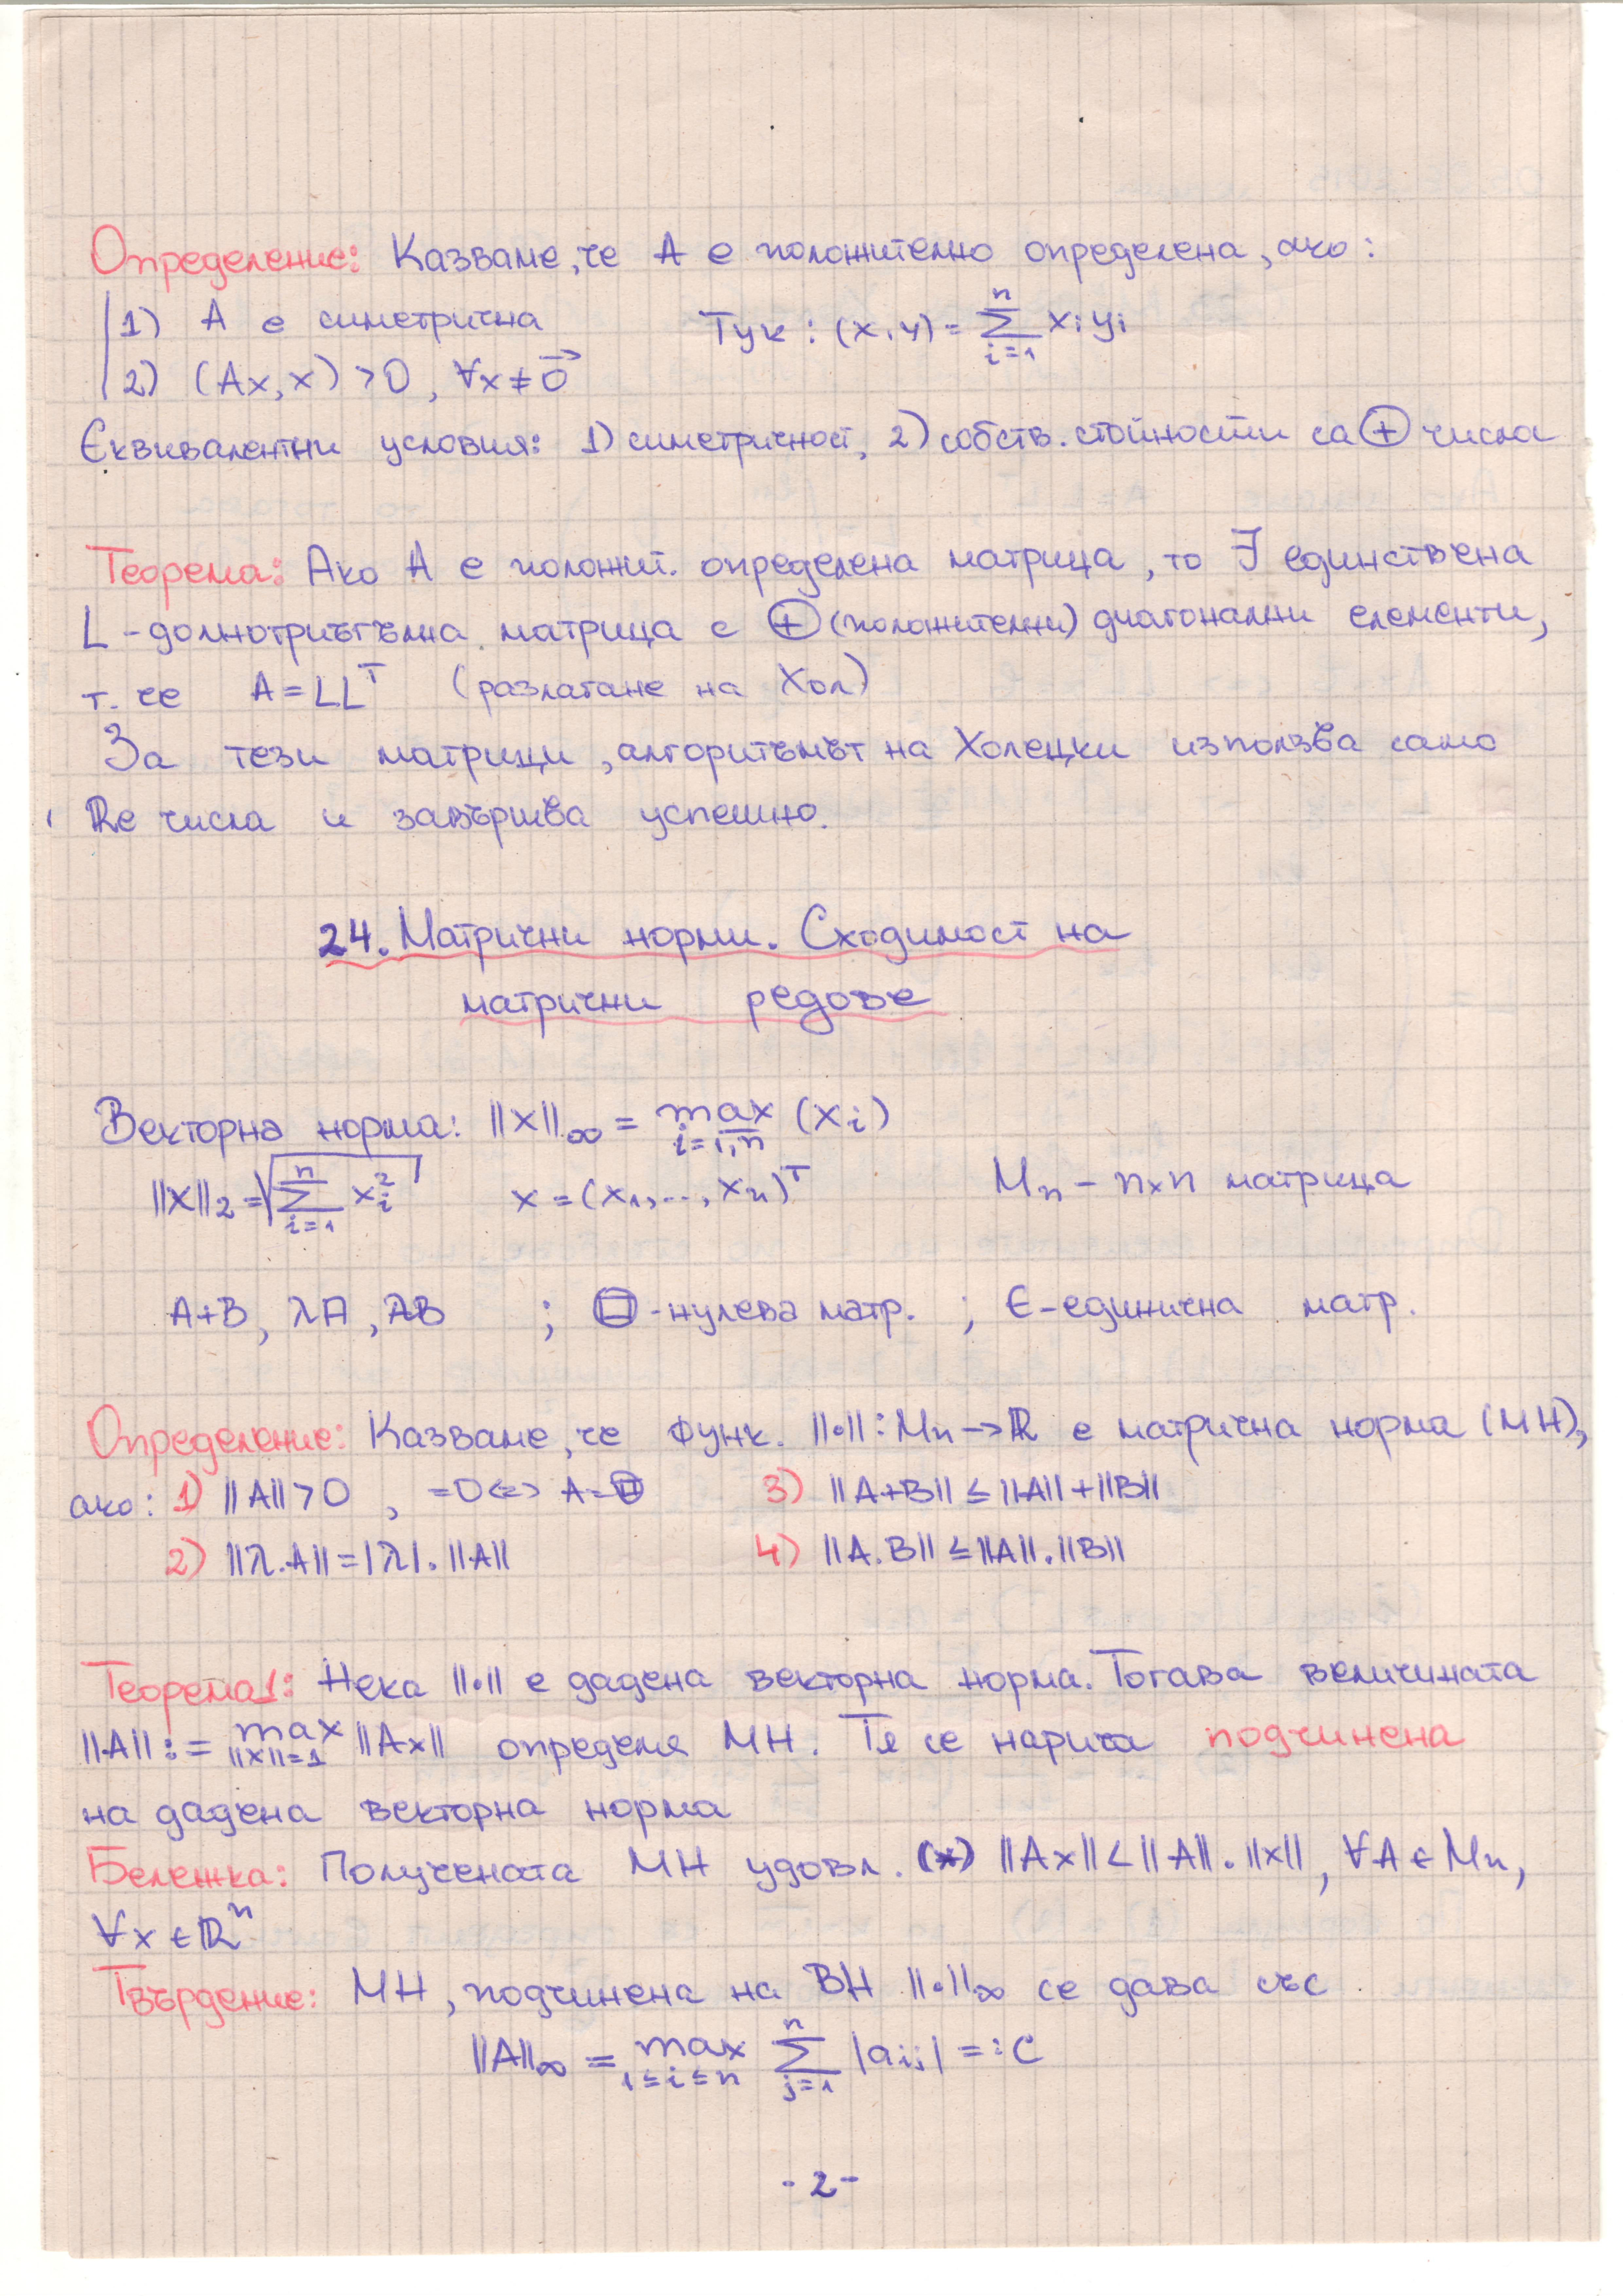 Определение: Казваме, че A е положително определена, ако:
1) A е симетрична Тук: (x,y) = ∑_{i=1}^{n} x_i y_i
2) (Ax,x) > 0, ∀x ≠ 0⃗
Еквивалентни условия: 1) симетричност, 2) собств. стойности са ⊕ числа
Теорема: Ако A е положит. определена матрица, то ∃ единствена
L - долнотриъгълна матрица с ⊕ (положителни) диагонални елементи,
т. че A = LL^T (разлагане на Хол)
За тези матрици, алгоритъмът на Холецки използва само
Re числа и завършва успешно.
24. Матрични норми. Сходимост на
матрични редове
Векторна норма: ||x||_∞ = max_{i=1,n} (x_i)
||x||_2 = √(∑_{i=1}^{n} x_i^2) x = (x_1,..., x_n)^T M_n - n×n матрица
A+B, λA, AB ; ⊟ - нулева матр. ; E - единична матр.
Определение: Казваме, че функ. ||•||: M_n → ℝ е матрична норма (МН),
ако: 1) ||A|| > 0, =0 <=> A = ⊟ 3) ||A+B|| ≤ ||A|| + ||B||
2) ||λ.A|| = |λ|. ||A|| 4) ||A.B|| ≤ ||A||.||B||
Теорема1: Нека ||•|| е дадена векторна норма. Тогава величината
||A|| := max_{||x||=1} ||Ax|| определя МН. Тя се нарича подчинена
на дадена векторна норма
Бележка: Получената МН удовл. (*) ||Ax|| < ||A||.||x||, ∀A ∈ M_n,
∀x ∈ ℝ^n
Твърдение: МН, подчинена на ВН ||•||_∞ се дава със
||A||_∞ = max_{1≤i≤n} ∑_{j=1}^{n} |a_{ij}| =: C
- 2 -